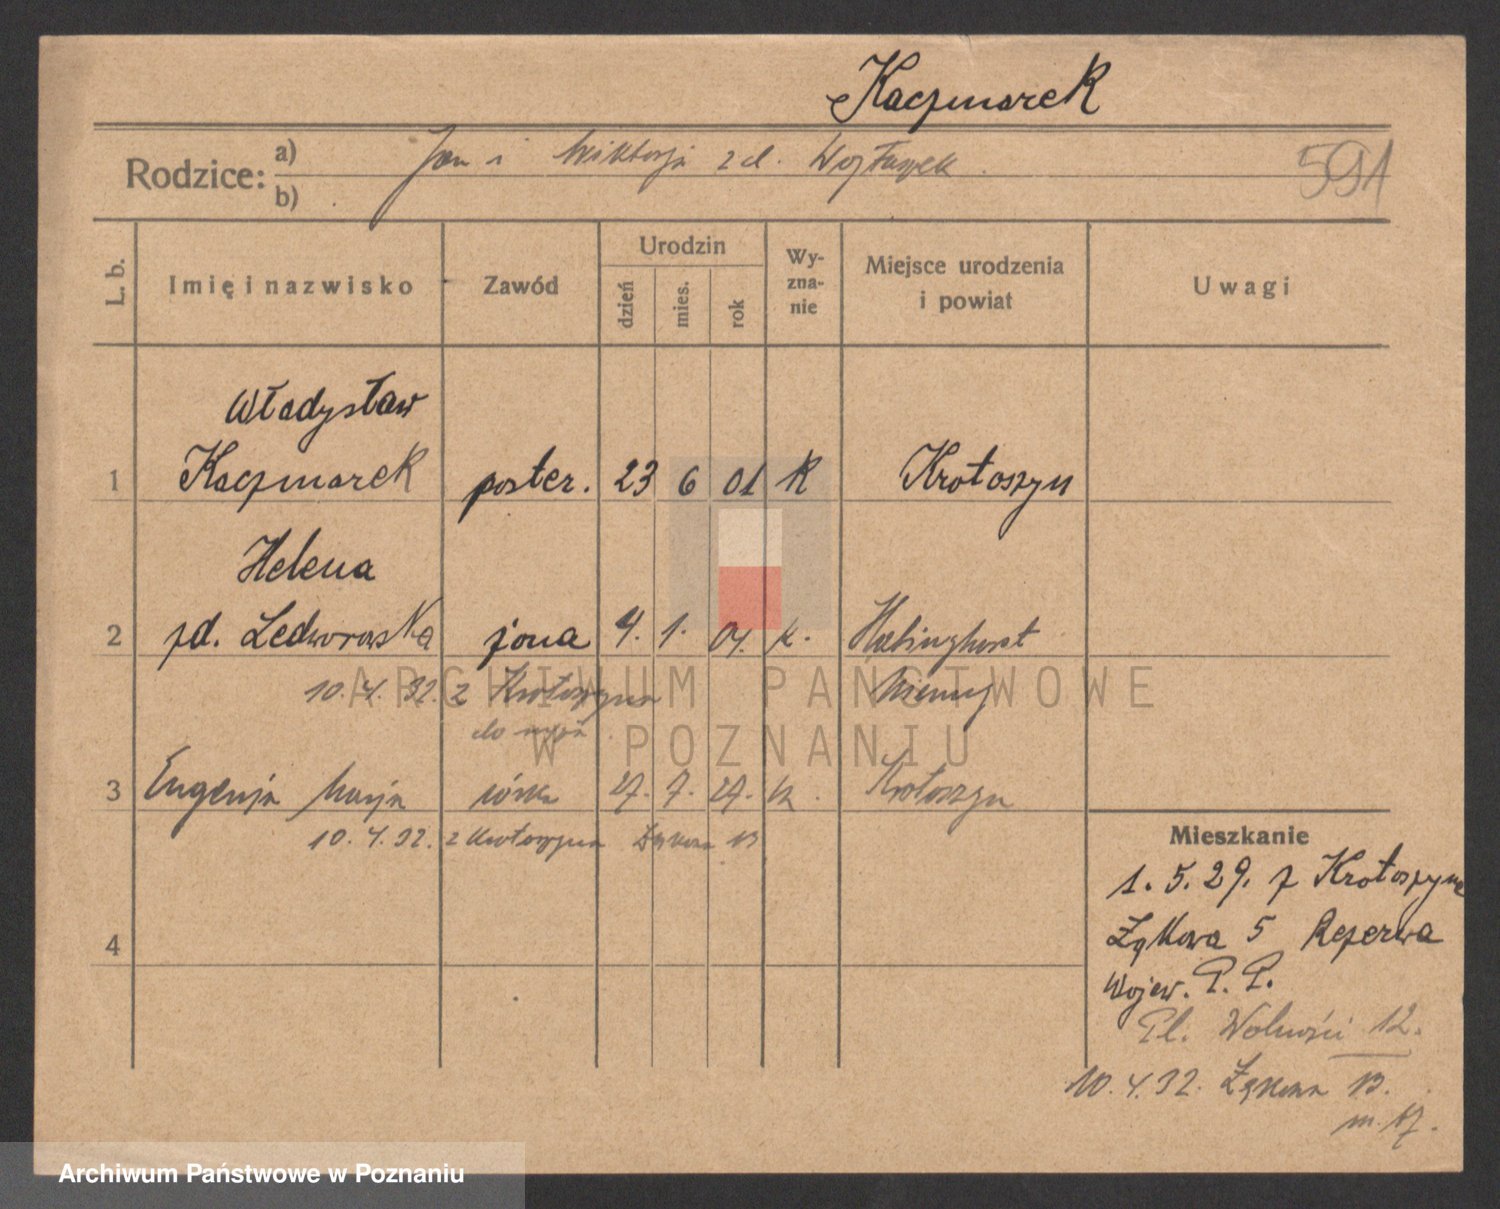 Kaczmarek
Rodzice: a) Jan i Wiktorja z d. 
b)
591
L. b.
Imię i nazwisko
Zawód
Urodzin
dzień
mies.
rok
Wy-
zna-
nie
Miejsce urodzenia
i powiat
Uwagi
Władysław
1 Kaczmarek poster. 23 6 01 K Krotoszyn
Helena
2 zd. Ledworowska żona 4. 1. 04. k.
10. 4. 32. z Krotoszyna Niemcy
do męża
3 Eugenja Marja córka 27. 7. 27. k. Krotoszyn
10. 4. 32. z Krotoszyna Łąkowa 13
4
Mieszkanie
1. 5. 29. z Krotoszyna
Łąkowa 5 Rezerwa
Wojew. P. P.
Pl. Wolności 12.
10. 4. 32. Łąkowa 13.
m. 17.
ARCHIWUM PAŃSTWOWE
W POZNANIU
Archiwum Państwowe w Poznaniu